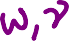 ω, ν